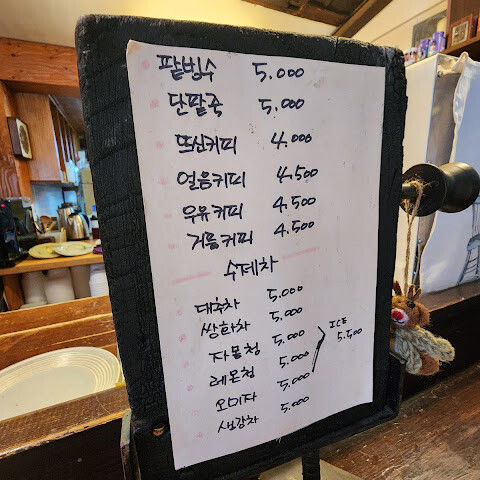 팥빙수 5.000
단팥죽 5.000
뜨신커피 4.000
얼음커피 4.500
우유커피 4.500
거품커피 4.500
수제차
대추차 5.000
쌍화차 5.000
자몽청 5.000
레몬청 5.000
오미자 5.000
생강차 5.000
ICE
5.500